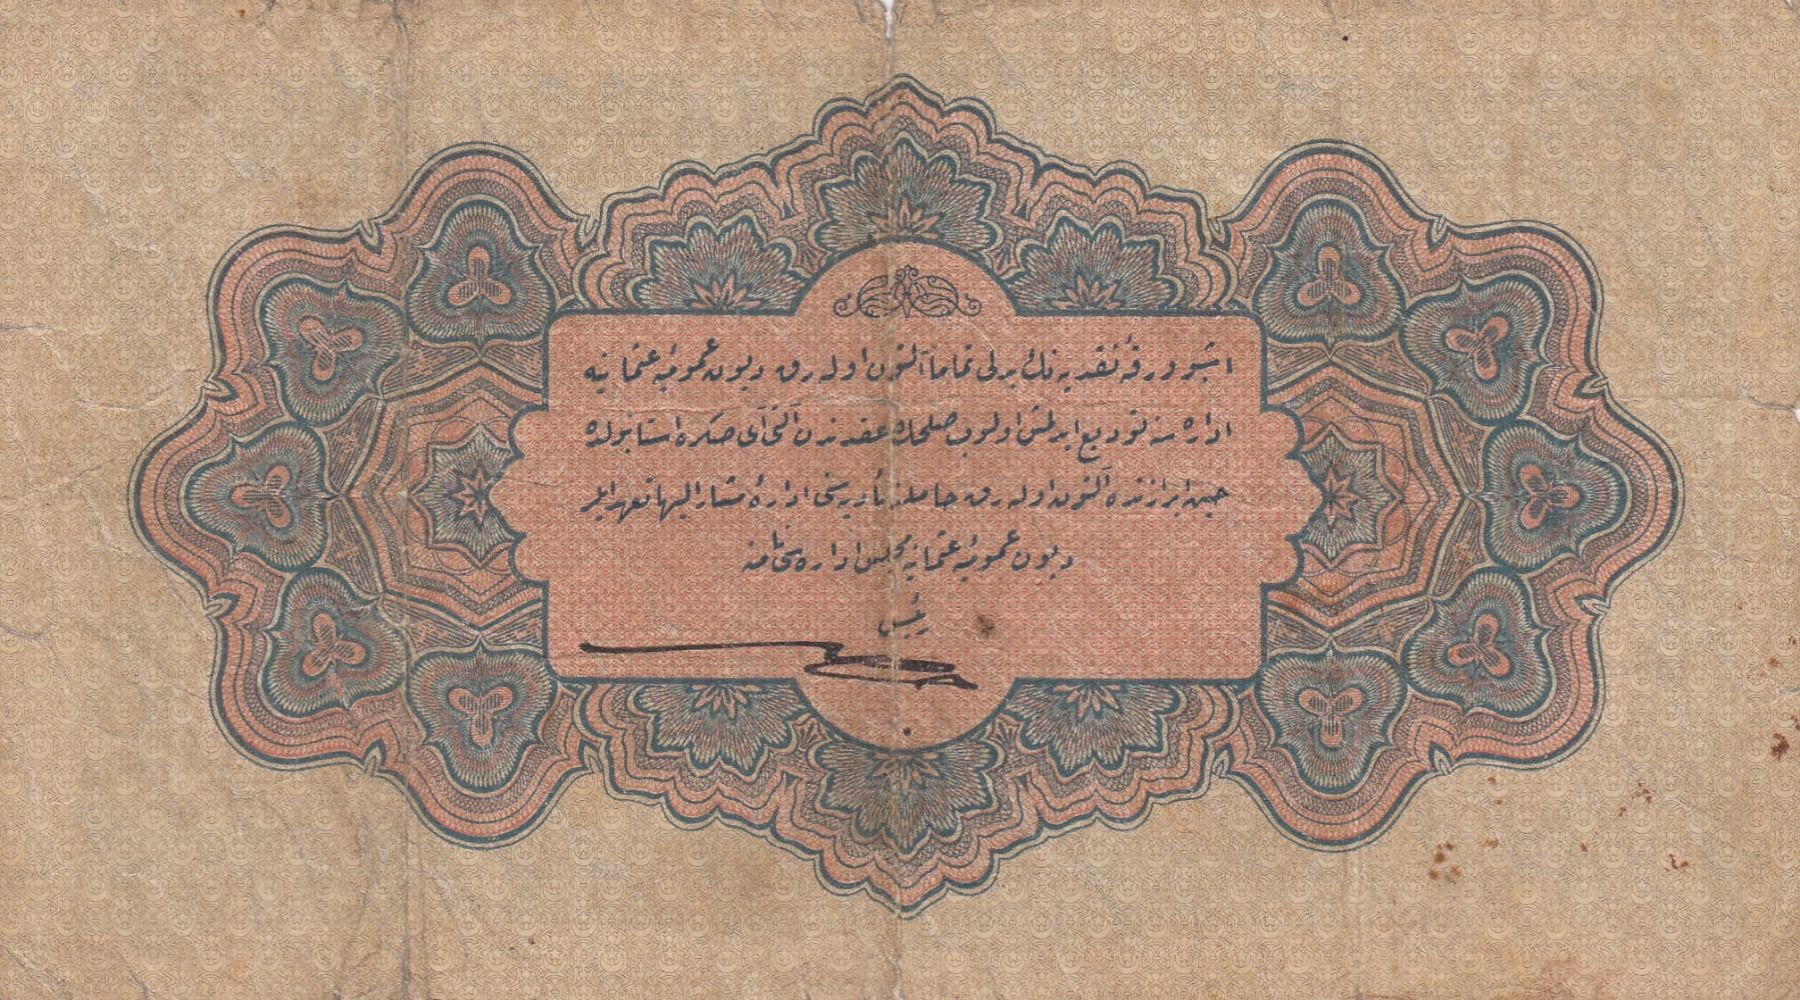 اشبو ورقهٔ نقدیه نك بدلی تماماً آلتون اوله رق دیون عمومیهٔ عثمانیه
اداره سنه تودیع ایدلمش اولوب صلحك عقدندن آلتی آی صكره استانبولده
حین ابرازنده آلتون اوله رق حاملنه تأدیه سنی ادارهٔ مشار الیها تعهد ایلر
دیون عمومیهٔ عثمانیه مجلس اداره سی نامنه
رئیس